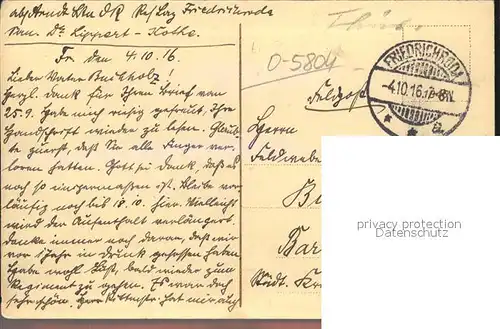 abs Arndt Ltn d R Res Laz Friedrichroda
San. Dr Lippert - Kothe.
Fr. den 4.10.16
Lieber Vater Buchholz!
Herzl. Dank für Ihren Brief vom
25.9. Habe mich riesig gefreut, Ihre
Handschrift wieder zu lesen. Glaubte
zuerst, daß Sie alle Finger ver-
loren hatten. Gott sei Dank, daß es
noch so einigermassen ist. Bleibe vor-
läufig noch bis 18.10. hier. Vielleicht
wird der Aufenthalt verlängert.
Denke immer noch daran, daß wir
vor 1 Jahr in gesessen haben.
Habe wohl Lust, bald wieder zum
Regiment zu gehen. Es war doch
sehr schön. Herr Rittmstr hat mir auch
Thür.
O-5804
FRIEDRICHRODA
-4.10.16.12-8N.
a
Feldpost
Herrn
Feldwebel
Bu
Bar
Städt. Kr
privacy protection
Datenschutz